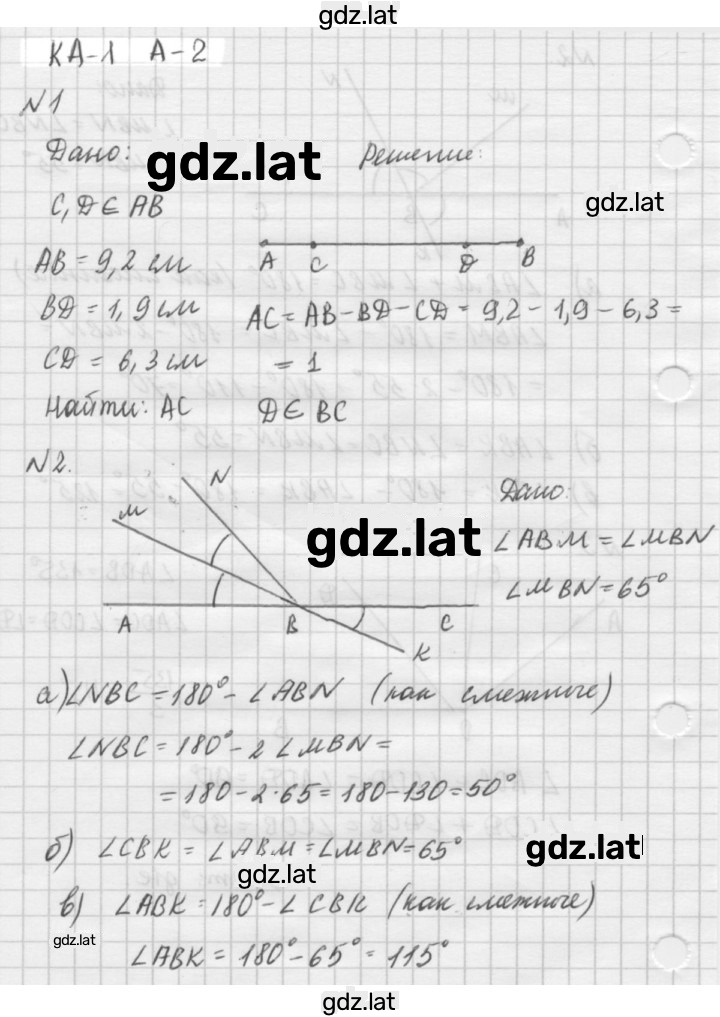 gdz.lat
КА-1 А-2
N1
Дано:
gdz.lat
Решение:
C, D ∈ AB
gdz.lat
A C D B
AB = 9,2 см
BD = 1,9 см
AC = AB - BD - CD = 9,2 - 1,9 - 6,3 =
CD = 6,3 см
= 1
Найти: AC
D ∈ BC
N2.
N
M
Дано:
gdz.lat
∠ABM = ∠MBN
∠MBN = 65°
A B C
K
а) ∠NBC = 180° - ∠ABN (как смежные)
∠NBC = 180° - 2 ∠MBN =
= 180 - 2·65 = 180 - 130 = 50°
б) ∠CBK = ∠ABM = ∠MBN = 65°
gdz.lat
gdz.lat
в) ∠ABK = 180° - ∠CBK (как смежные)
gdz.lat
∠ABK = 180° - 65° = 115°
gdz.lat